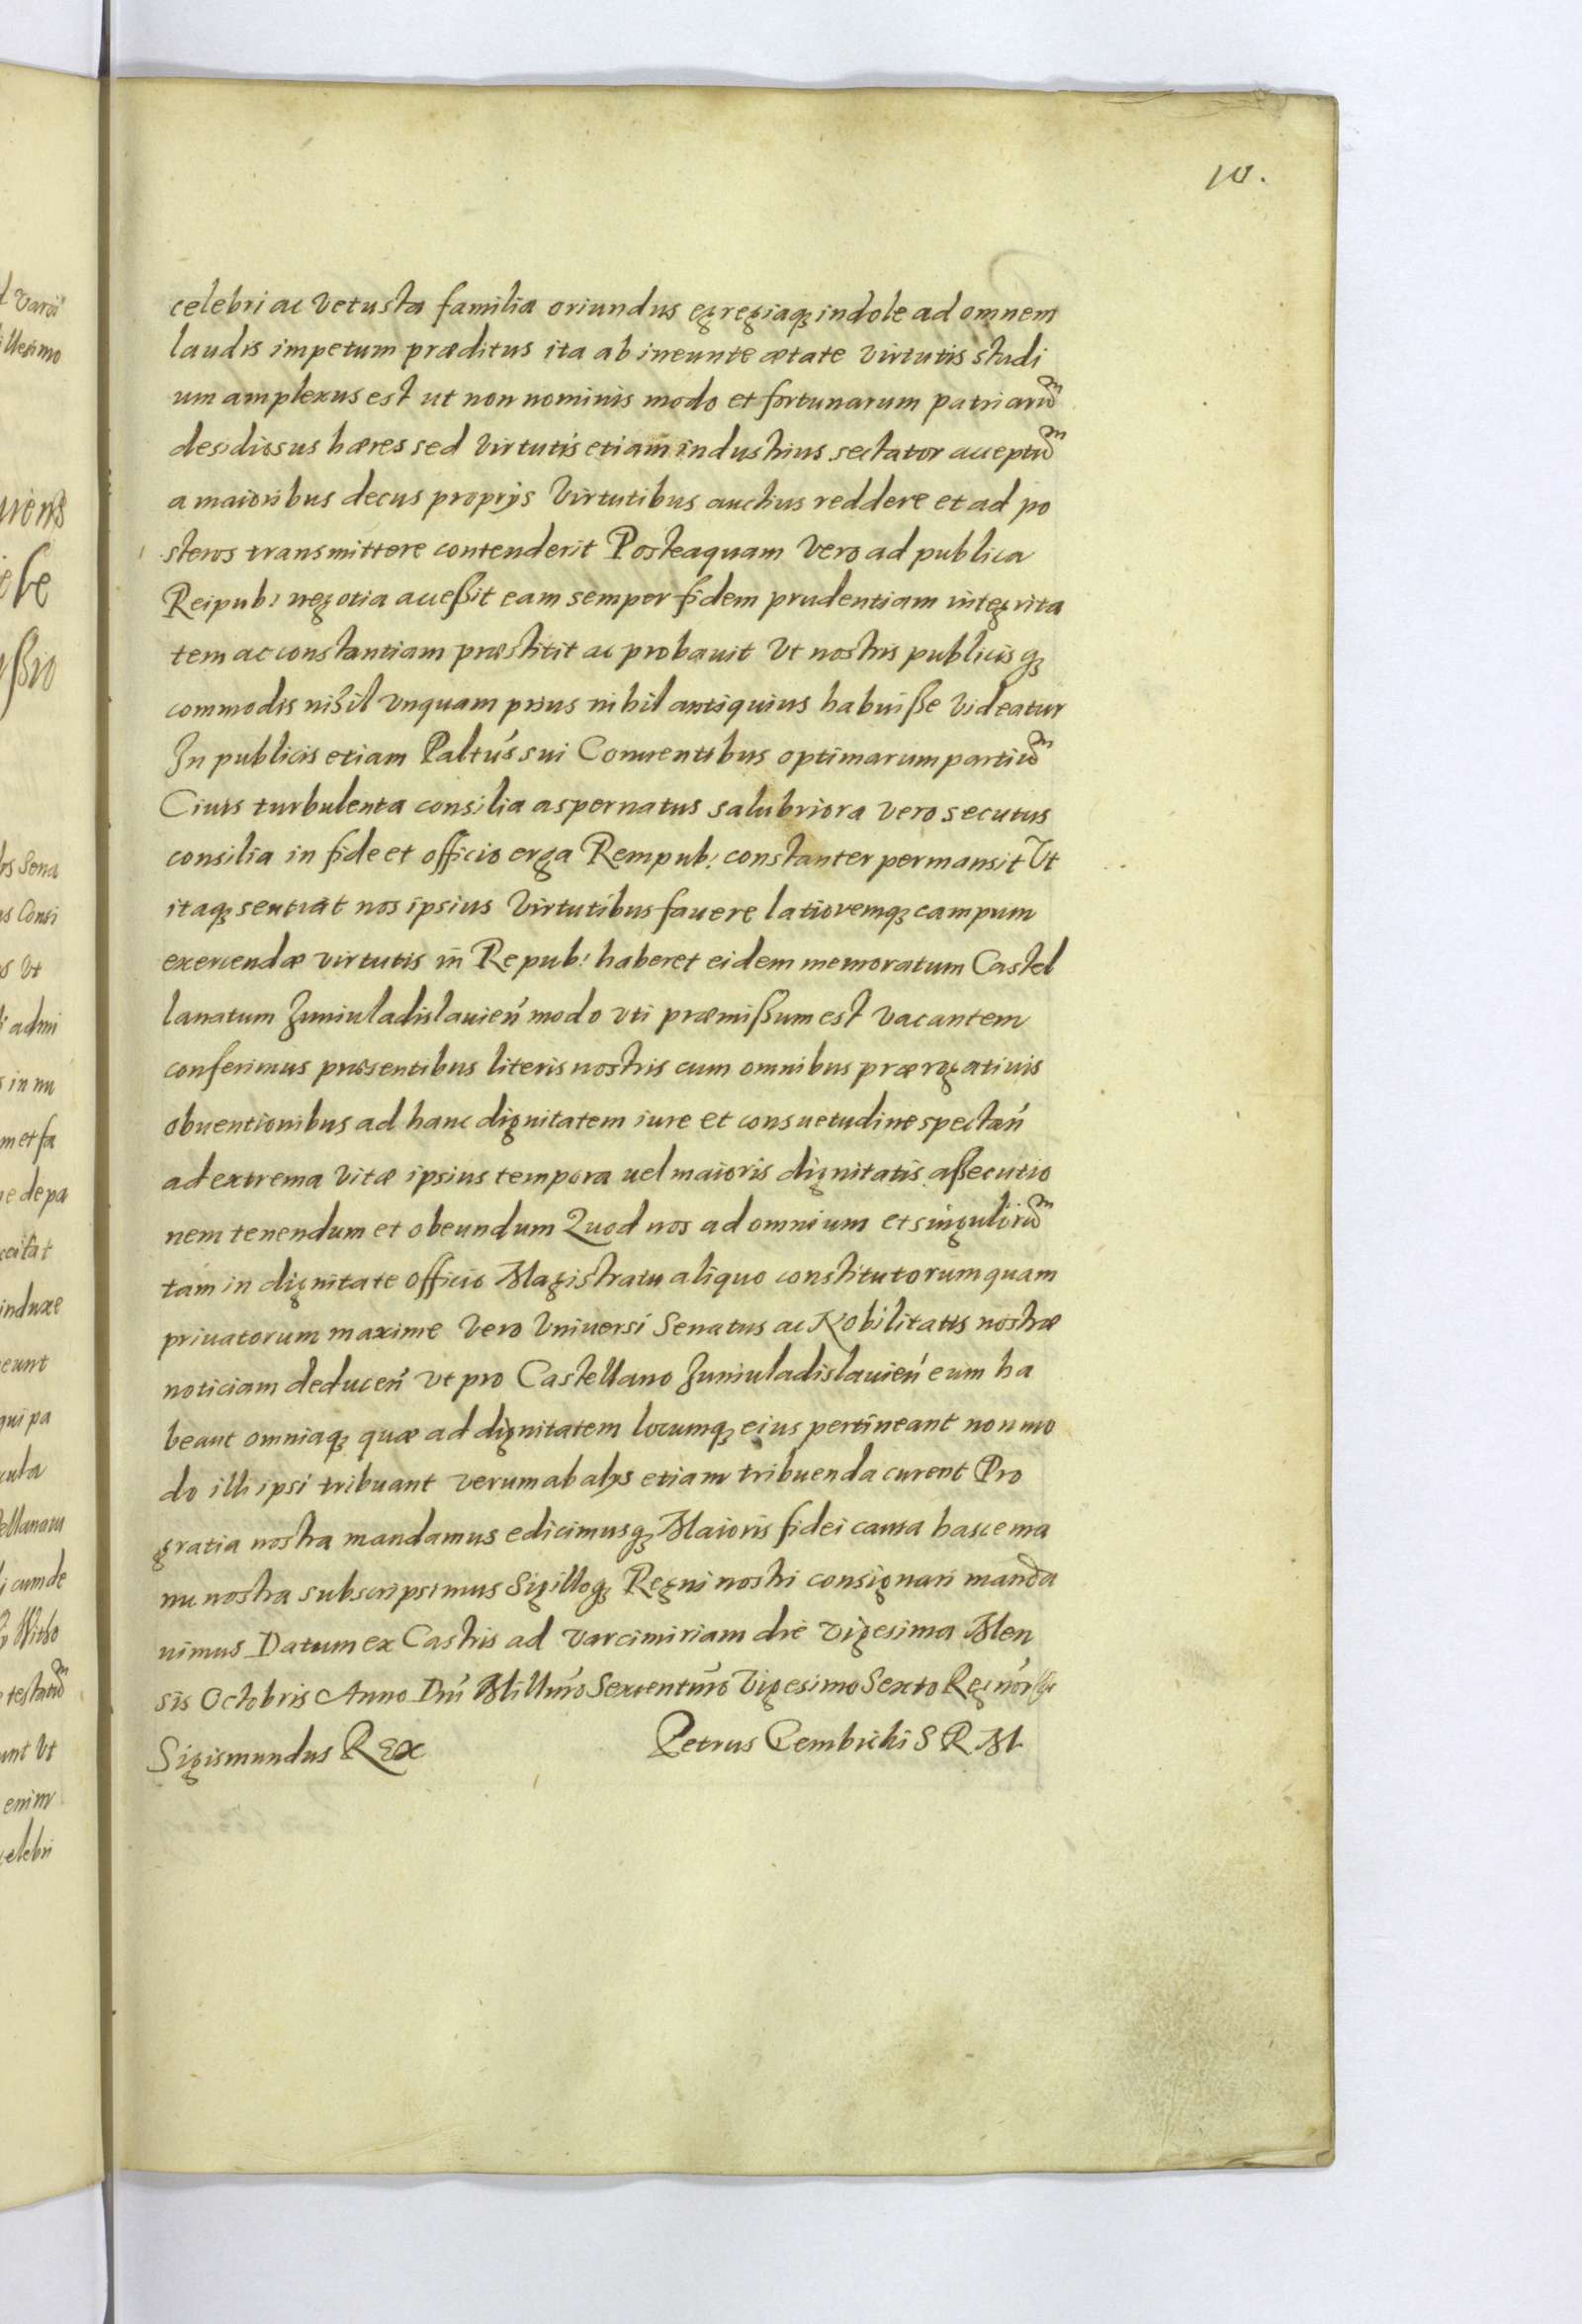 10.
celebri ac vetusta familia oriundus egregiaq; indole ad omnem
laudis impetum præditus ita ab ineunte ætate virtutis studi
um amplexus est ut non nominis modo et fortunarum patriarũ
desidiosus hæres sed virtutis etiam industrius sectator acceptũ
a maioribus decus proprijs virtutibus auctius reddere et ad po
steros transmittere contenderit Posteaquam vero ad publica
Reipub: negotia accessit eam semper fidem prudentiam integrita
tem ac constantiam præstitit ac probauit Vt nostris publicis q;
commodis nihil vnquam prius nihil antiquius habuisse videatur
In publicis etiam Paltus sui Conuentibus optimarum partiũ
Ciuis turbulenta consilia aspernatus salubriora vero secutus
consilia in fide et officio erga Rempub: constanter permansit Vt
itaq; sentiat nos ipsius virtutibus fauere latioremq; campum
exercendæ virtutis in Repub: haberet eidem memoratum Castel
lanatum Juniuladislauień modo vti præmissum est vacantem
conferimus præsentibus literis nostris cum omnibus prærogatiuis
obuentionibus ad hanc dignitatem iure et consuetudine spectań
ad extrema vitæ ipsius tempora uel maioris dignitatis assecutio
nem tenendum et obeundum Quod nos ad omnium et singulorũ
tam in dignitate officio Magistratu aliquo constitutorum quam
priuatorum maxime vero vniuersi Senatus ac Nobilitatis nostræ
noticiam deduceń vt pro Castellano Juniuladislauień eum ha
beant omniaq; quæ ad dignitatem locumq; eius pertineant non mo
do illi ipsi tribuant verum ab alijs etiam tribuenda curent Pro
gratia nostra mandamus edicimusq; Maioris fidei causa hasce ma
nu nostra subscripsimus Sigilloq; Regni nostri consignari manda
uimus Datum ex Castris ad Varcimiriam die vigesima Men
sis Octobris Anno Dni Millmo Sexcentmo Vigesimo Sexto Regnor
Sigismundus Rex Petrus Gembicki S R M